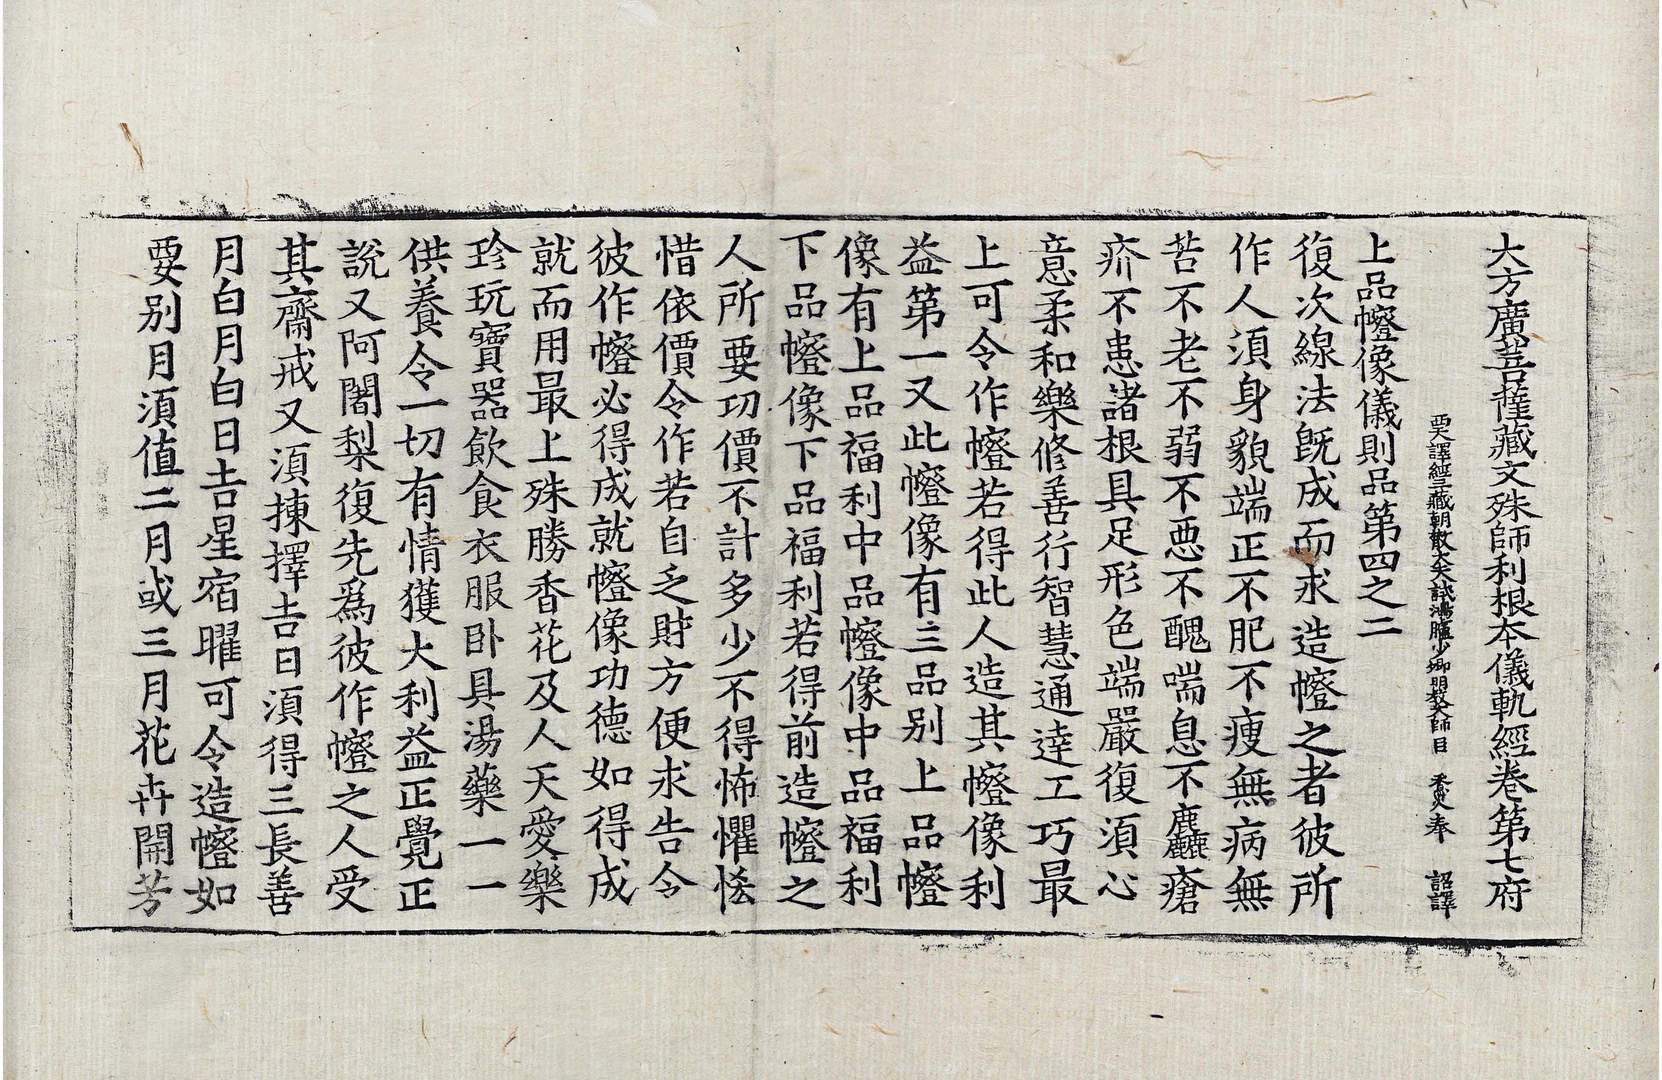 大方廣菩薩藏文殊師利根本儀軌經卷第七府
西天譯經三藏朝散大夫試鴻臚少卿明教大師臣 天息災奉 詔譯
上品㡧像儀則品第四之二
復次線法旣成而求造㡧之者彼所
作人須身貌端正不肥不瘦無病無
苦不老不弱不悪不醜喘息不麤瘡
疥不患諸根具足形色端嚴復須心
意柔和樂修善行智慧通達工巧最
上可令作㡧若得此人造其㡧像利
益第一又此㡧像有三品别上品㡧
像有上品福利中品㡧像中品福利
下品㡧像下品福利若得前造㡧之
人所要功價不計多少不得怖懼恡
惜依價令作若自乏財方便求告令
彼作㡧必得成就㡧像功德如得成
就而用最上殊勝香花及人天愛樂
珍玩寶器飲食衣服卧具湯藥一一
供養令一切有情獲大利益正覺正
說又阿闍梨復先爲彼作㡧之人受
其齋戒又須揀擇吉日須得三長善
月白月白日吉星宿曜可令造㡧如
要别月須值二月或三月花卉開芳